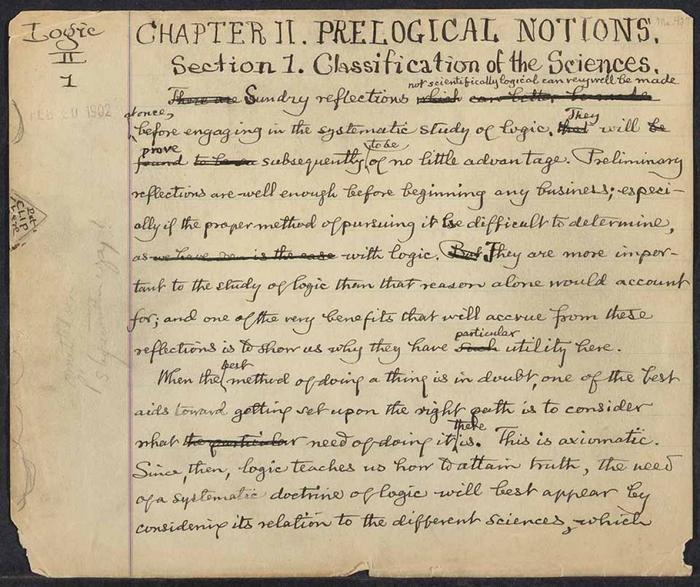 Logic
II
1
FEB 20 1902
Put
CLIP
Here
CHAPTER II. PRELOGICAL NOTIONS.
Section 1. Classification of the Sciences.
not scientifically logical can very well be made
There are Sundry reflections which can better be made
at once,
They
before engaging in the systematic study of logic. that will be
prove
to be
found to be subsequently of no little advantage. Preliminary
reflections are well enough before beginning any business; especi-
ally if the proper method of pursuing it be difficult to determine,
as we have seen is the case with logic. But They are more impor-
tant to the study of logic than that reason alone would account
for; and one of the very benefits that will accrue from these
particular
reflections is to show us why they have such utility here.
best
When the method of doing a thing is in doubt, one of the best
aids toward getting set upon the right path is to consider
there
what the particular need of doing it is. This is axiomatic.
Since, then, logic teaches us how to attain truth, the need
of a systematic doctrine of logic will best appear by
considering its relation to the different sciences, which